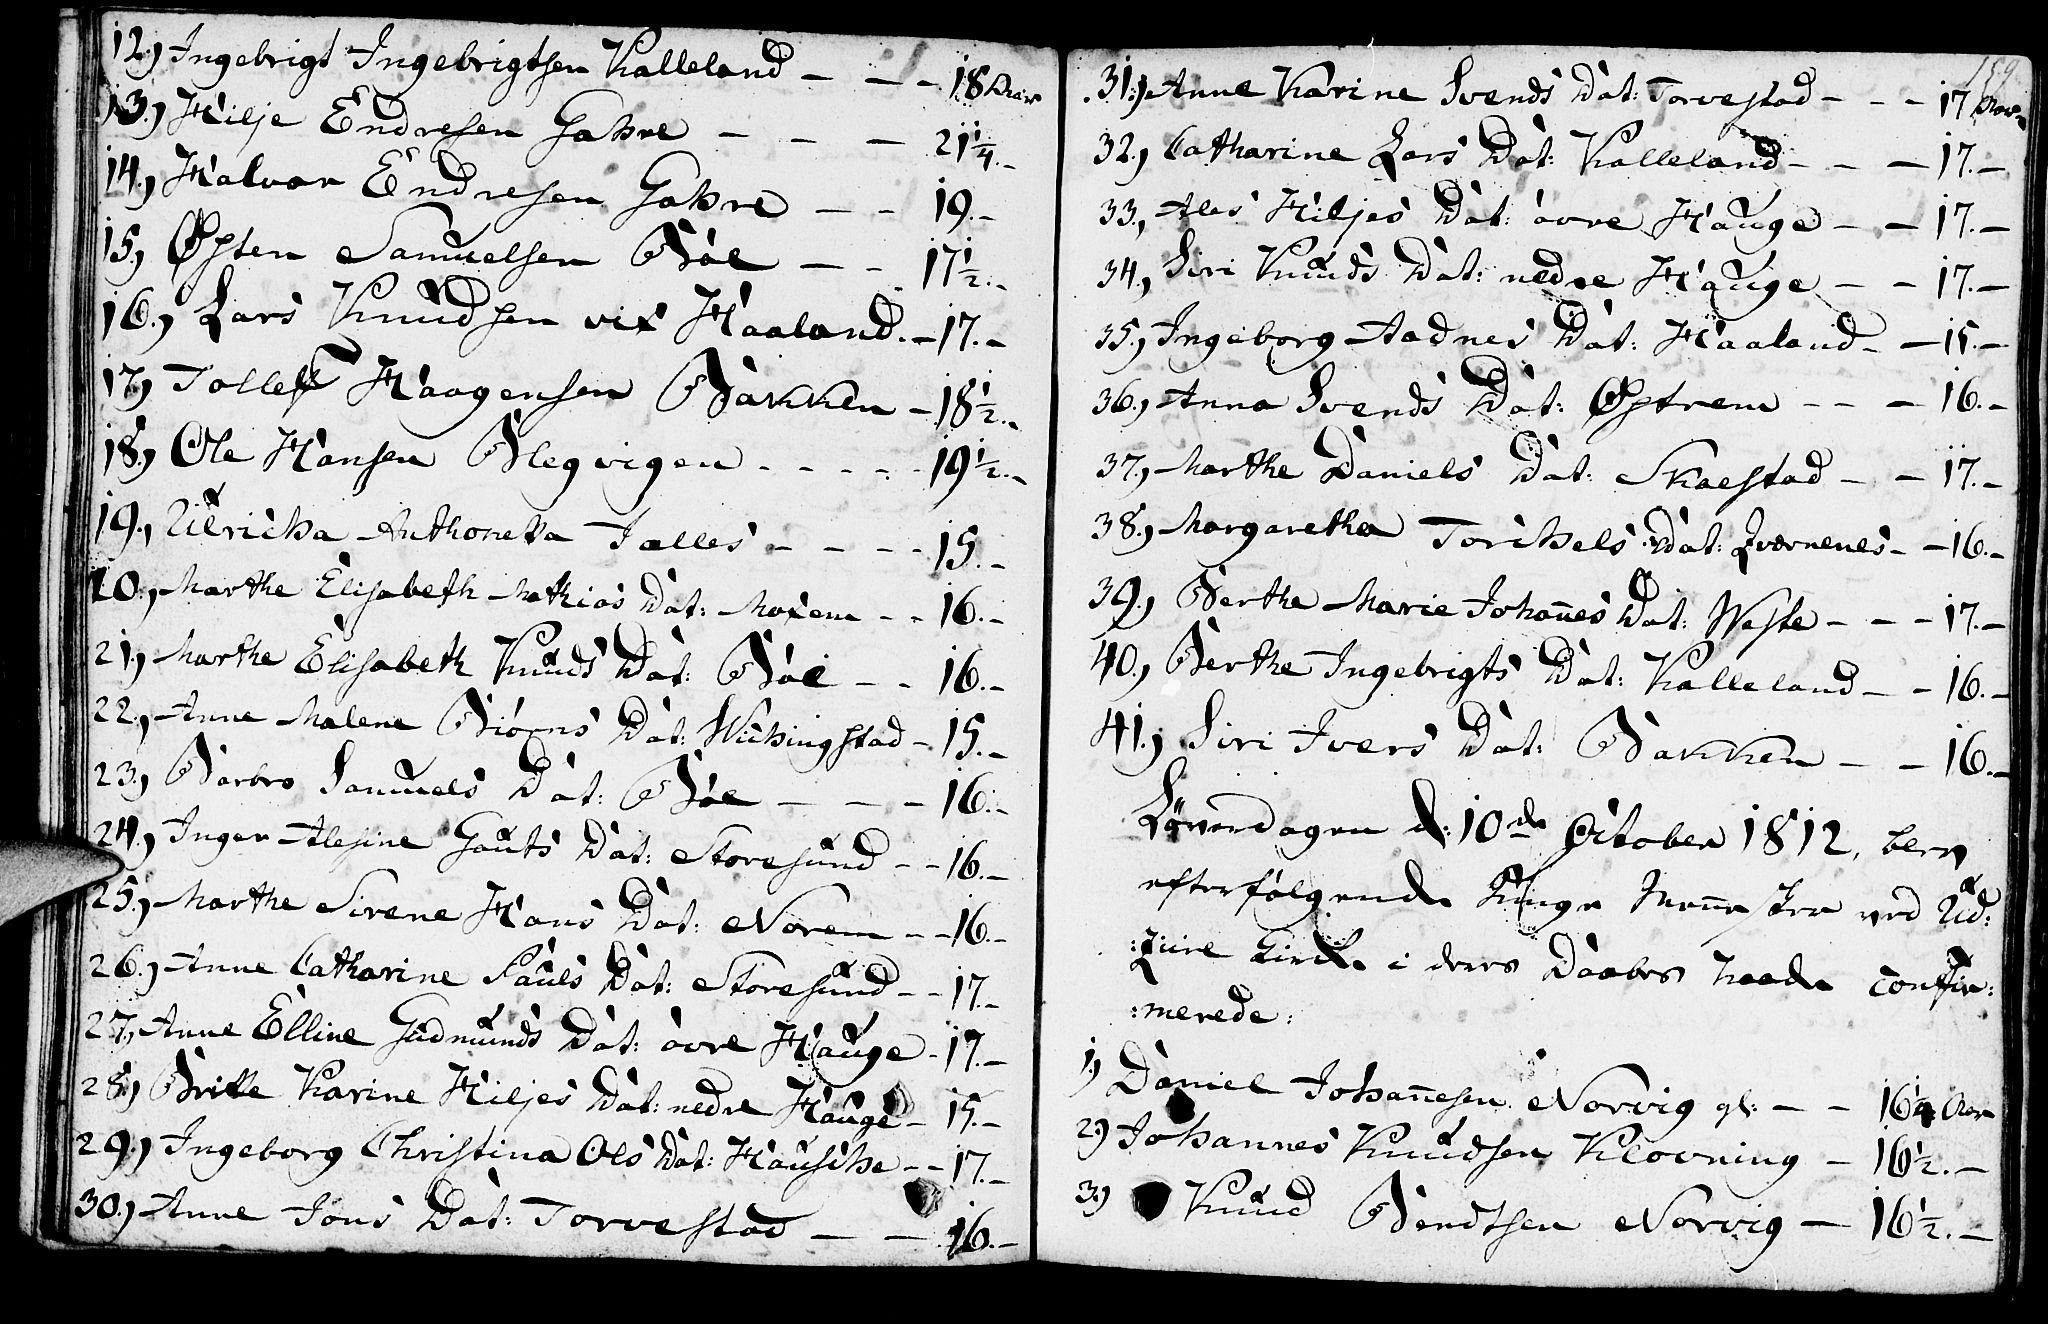 12.) Ingebrigt Ingebrigtsen Kalleland - - - 18 Aar
13.) Hilje Endresen Gahre - - - 21 1/4.-
14.) Halvor Endresen Gahre - - 19.-
15.) Østen Samuelsen Bøe - - 17 1/2.-
16.) Lars Knudsen vix Haaland.- 17.-
17.) Tollef Haagensen Bakken - 18 1/2.-
18.) Ole Hansen Blegvigen - - - - 19 1/2.-
19.) Ulricha Anthonetta Jalles - - - - 15.-
20.) Marthe Elisabeth Mathias Dat: Moxem - - 16.-
21.) Marthe Elisabeth Knuds Dat: Bøe - - 16.-
22.) Anne Malene Biørns Dat: Wichingstad - 15.-
23.) Barbro Samuels Dat: Bøe - - - 16.-
24.) Inger Alesine Gauts Dat: Storesund - - 16.-
25.) Marthe Sirene Hans Dat: Norem - - 16.-
26.) Anne Catharine Pauls Dat: Storesund - - 17.-
27.) Anne Elline Gudmunds Dat: øvre Hauge - 17.-
28.) Britte Karine Hiljes Dat: nedre Hauge - 15.-
29.) Ingeborg Christina Ols Dat: Hauske - - 17.-
30.) Anne Jons Dat: Torvestad - - 16.-
159
31.) Anne Karine Svends Dat: Torvestad - - - 17 Aar
32.) Catharine Lars Dat: Kalleland - - - 17.-
33.) Ales Hiljes Dat: øvre Hauge - - 17.-
34.) Siri Knuds Dat: nedre Hauge - - 17.-
35.) Ingeborg Aadnes Dat: Haaland - - 15.-
36.) Anna Svends Dat: Østrem - - - 16.-
37.) Marthe Daniels Dat: Skaestad - - 17.-
38.) Margarethe Torchels Dat: Qværnenes - - 16.-
39.) Berthe Marie Johañes Dat: Weste - - - 17.-
40.) Berthe Ingebrigts Dat: Kalleland - - 16.-
41.) Siri Ivers Dat: Bakken - - 16.-
Løverdagen d: 10de October 1812, blev
efterfølgende Unge Mennesker ved Ud:
:züire Kirke i deres Daabes Naade confir:
:merede:
1.) Daniel Johañesen Norvig gl: - - 16 1/4 Aar
2.) Johannes Knudsen Kløvning - 16 1/2.-
3.) Knud Bendtsen Norvig - 16 1/2.-